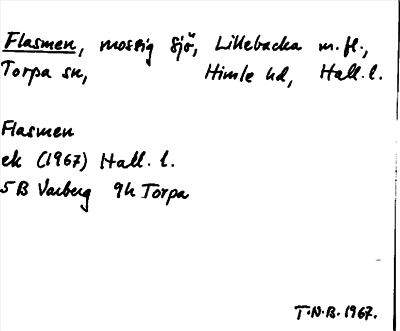 Flasmen, mossig sjö, Lillebacka m.fl.,
Torpa sn, Himle hd, Hall. l.
Flasmen
ek (1967) Hall. l.
5B Varberg 9h Torpa
T.N.B. 1967.